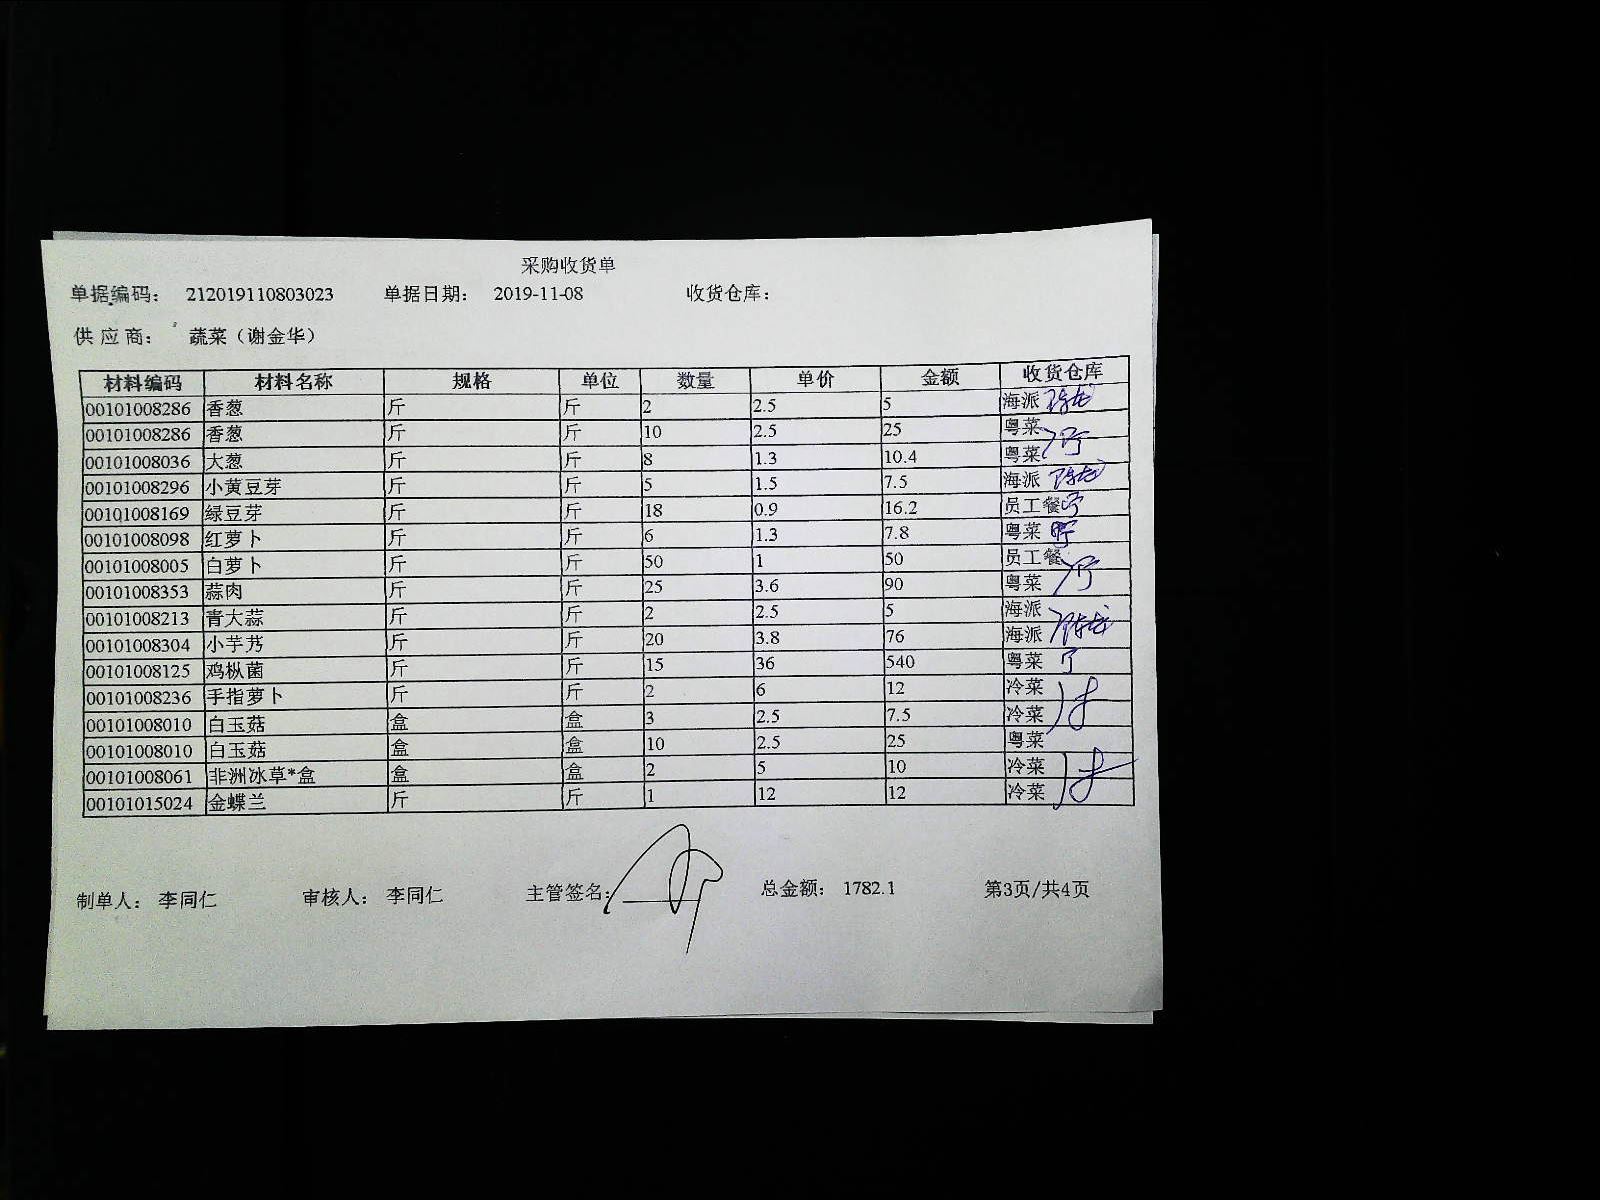 采购收货单
单据编码： 212019110803023 单据日期： 2019-11-08 收货仓库：
供应商： 蔬菜（谢金华）
材料编码 材料名称 规格 单位 数量 单价 金额 收货仓库
00101008286 香葱 斤 斤 2 2.5 5 海派
00101008286 香葱 斤 斤 10 2.5 25 粤菜
00101008036 大葱 斤 斤 8 1.3 10.4 粤菜
00101008296 小黄豆芽 斤 斤 5 1.5 7.5 海派
00101008169 绿豆芽 斤 斤 18 0.9 16.2 员工餐
00101008098 红萝卜 斤 斤 6 1.3 7.8 粤菜
00101008005 白萝卜 斤 斤 50 1 50 员工餐
00101008353 蒜肉 斤 斤 25 3.6 90 粤菜
00101008213 青大蒜 斤 斤 2 2.5 5 海派
00101008304 小芋艿 斤 斤 20 3.8 76 海派
00101008125 鸡枞菌 斤 斤 15 36 540 粤菜
00101008236 手指萝卜 斤 斤 2 6 12 冷菜
00101008010 白玉菇 盒 盒 3 2.5 7.5 冷菜
00101008010 白玉菇 盒 盒 10 2.5 25 粤菜
00101008061 非洲冰草*盒 盒 盒 2 5 10 冷菜
00101015024 金蝶兰 斤 斤 1 12 12 冷菜
制单人： 李同仁 审核人： 李同仁 主管签名： 总金额： 1782.1 第3页/共4页